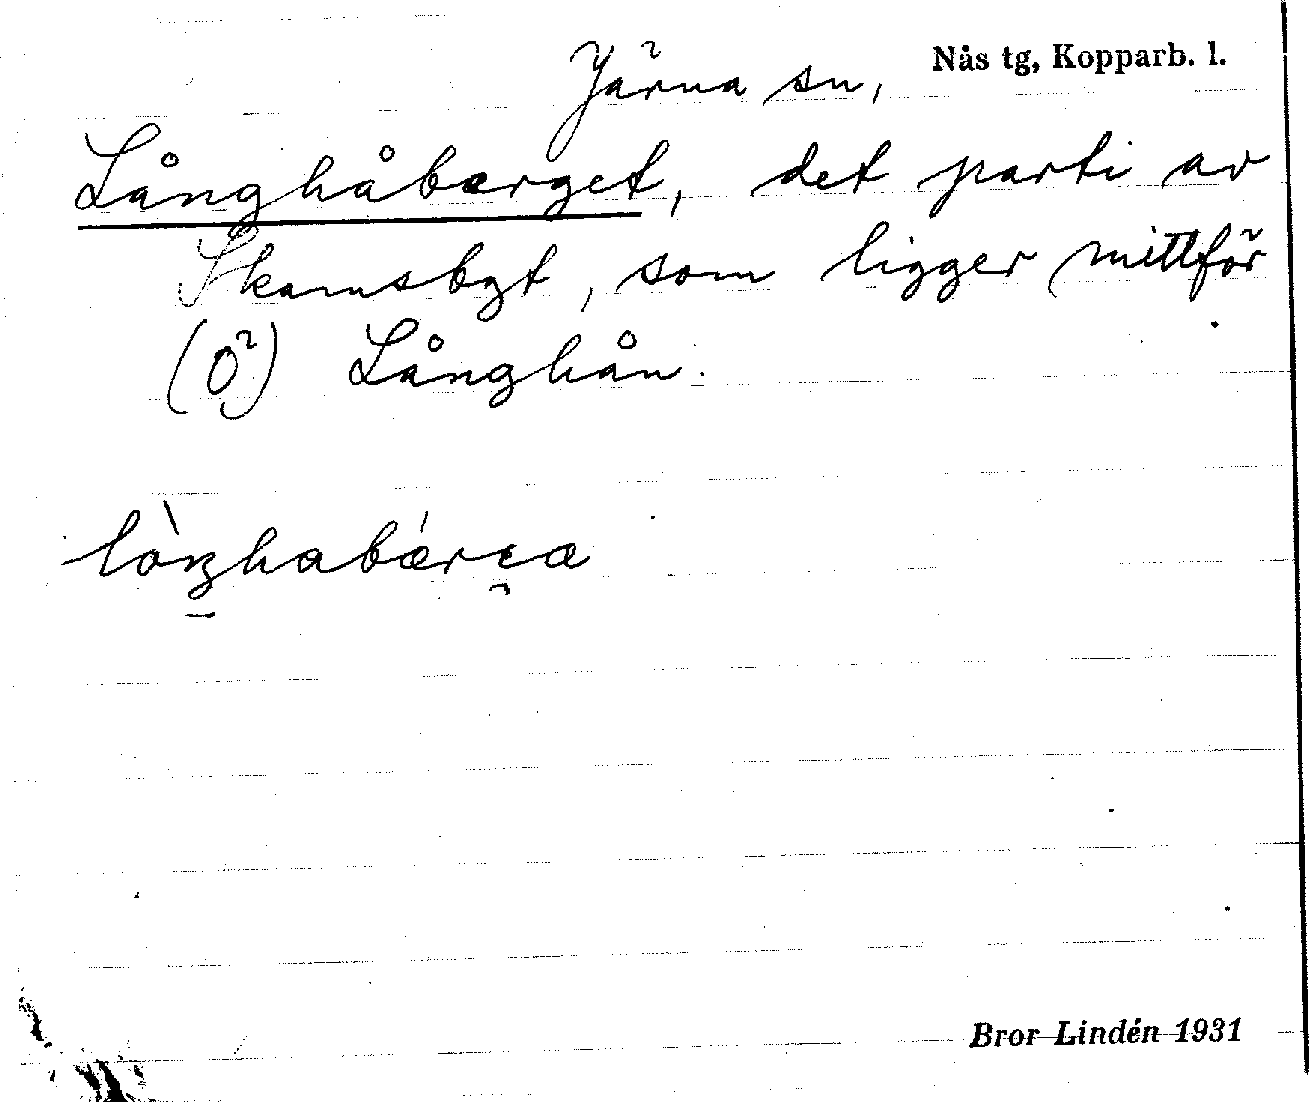 Järna sn, Nås tg, Kopparb. l.
Långhåberget, det parti av
Skamsbgt, som ligger mittför
(Ö) Långhån.
Bror Lindén 1931